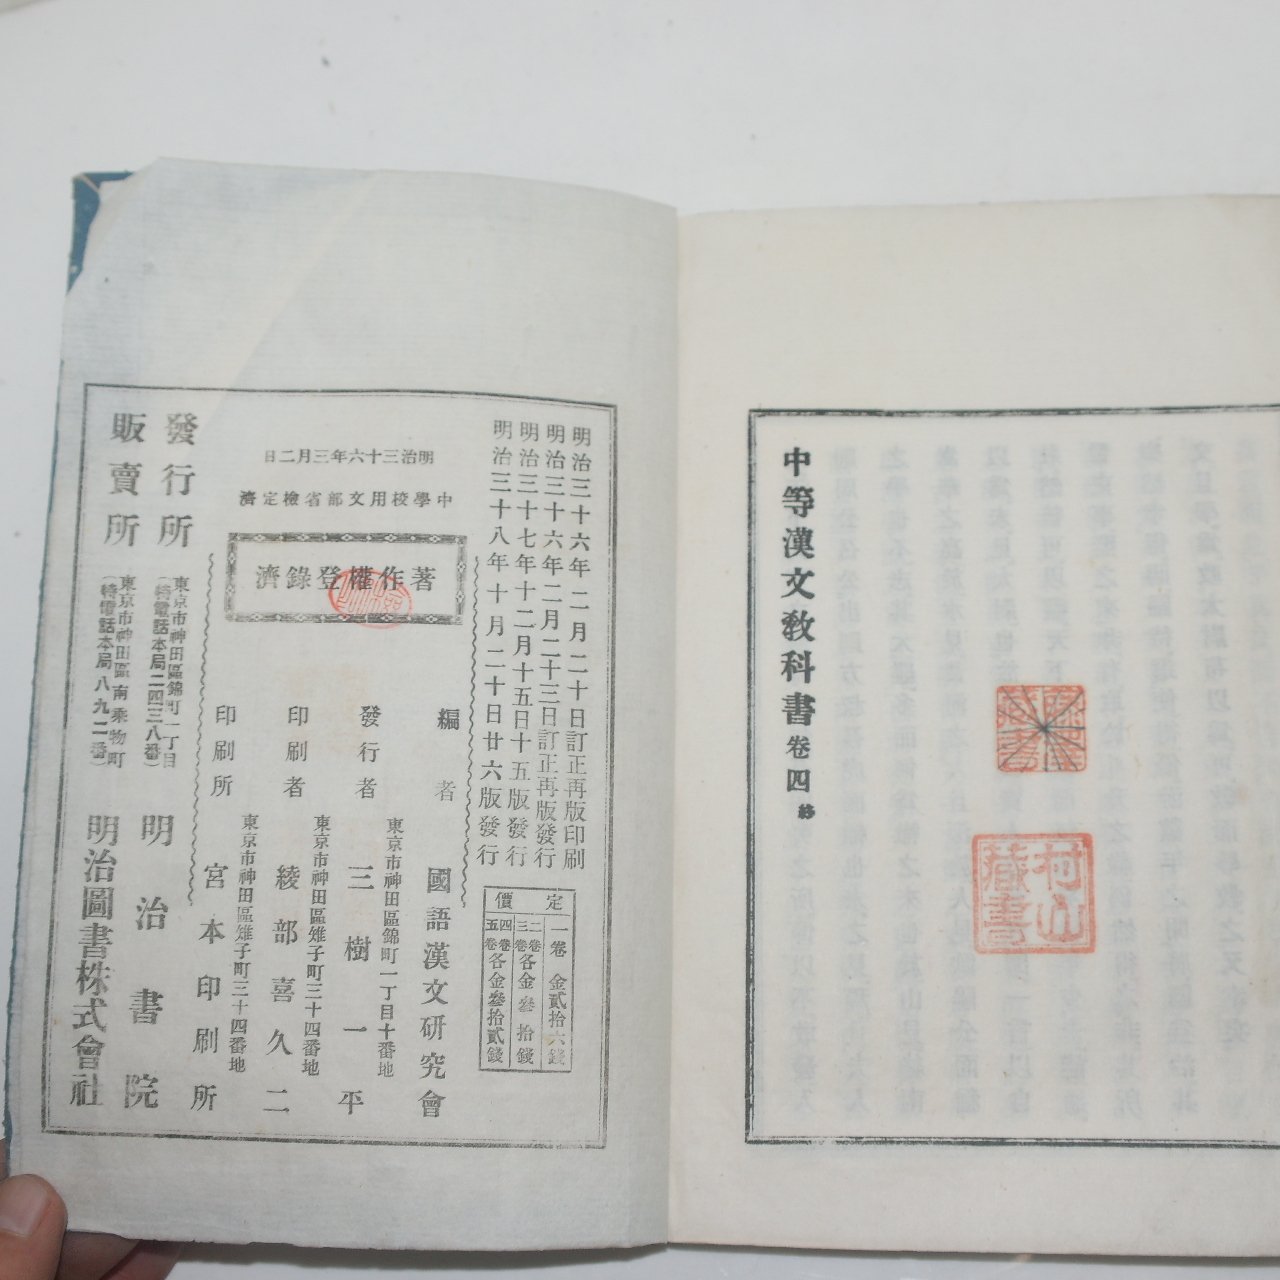 中等漢文敎科書卷四終
村山藏書
明治三十六年二月二十日訂正再版印刷
明治三十六年二月二十三日訂正再版發行
明治三十七年十二月十五日十五版發行
明治三十八年十月二十日廿六版發行
定價
一卷 金貳拾六錢
二卷三卷各金參拾錢
四卷五卷各金參拾貳錢
明治三十六年三月二日
中學校用文部省檢定濟
著作權登錄濟
編者 國語漢文研究會
東京市神田區錦町一丁目十番地
發行者 三樹一平
東京市神田區雉子町三十四番地
印刷者 綾部喜久二
東京市神田區雉子町三十四番地
印刷所 宮本印刷所
發行所 東京市神田區錦町一丁目(特電話本局二四三八番) 明治書院
販賣所 東京市神田區南乘物町(特電話本局八九二番) 明治圖書株式會社